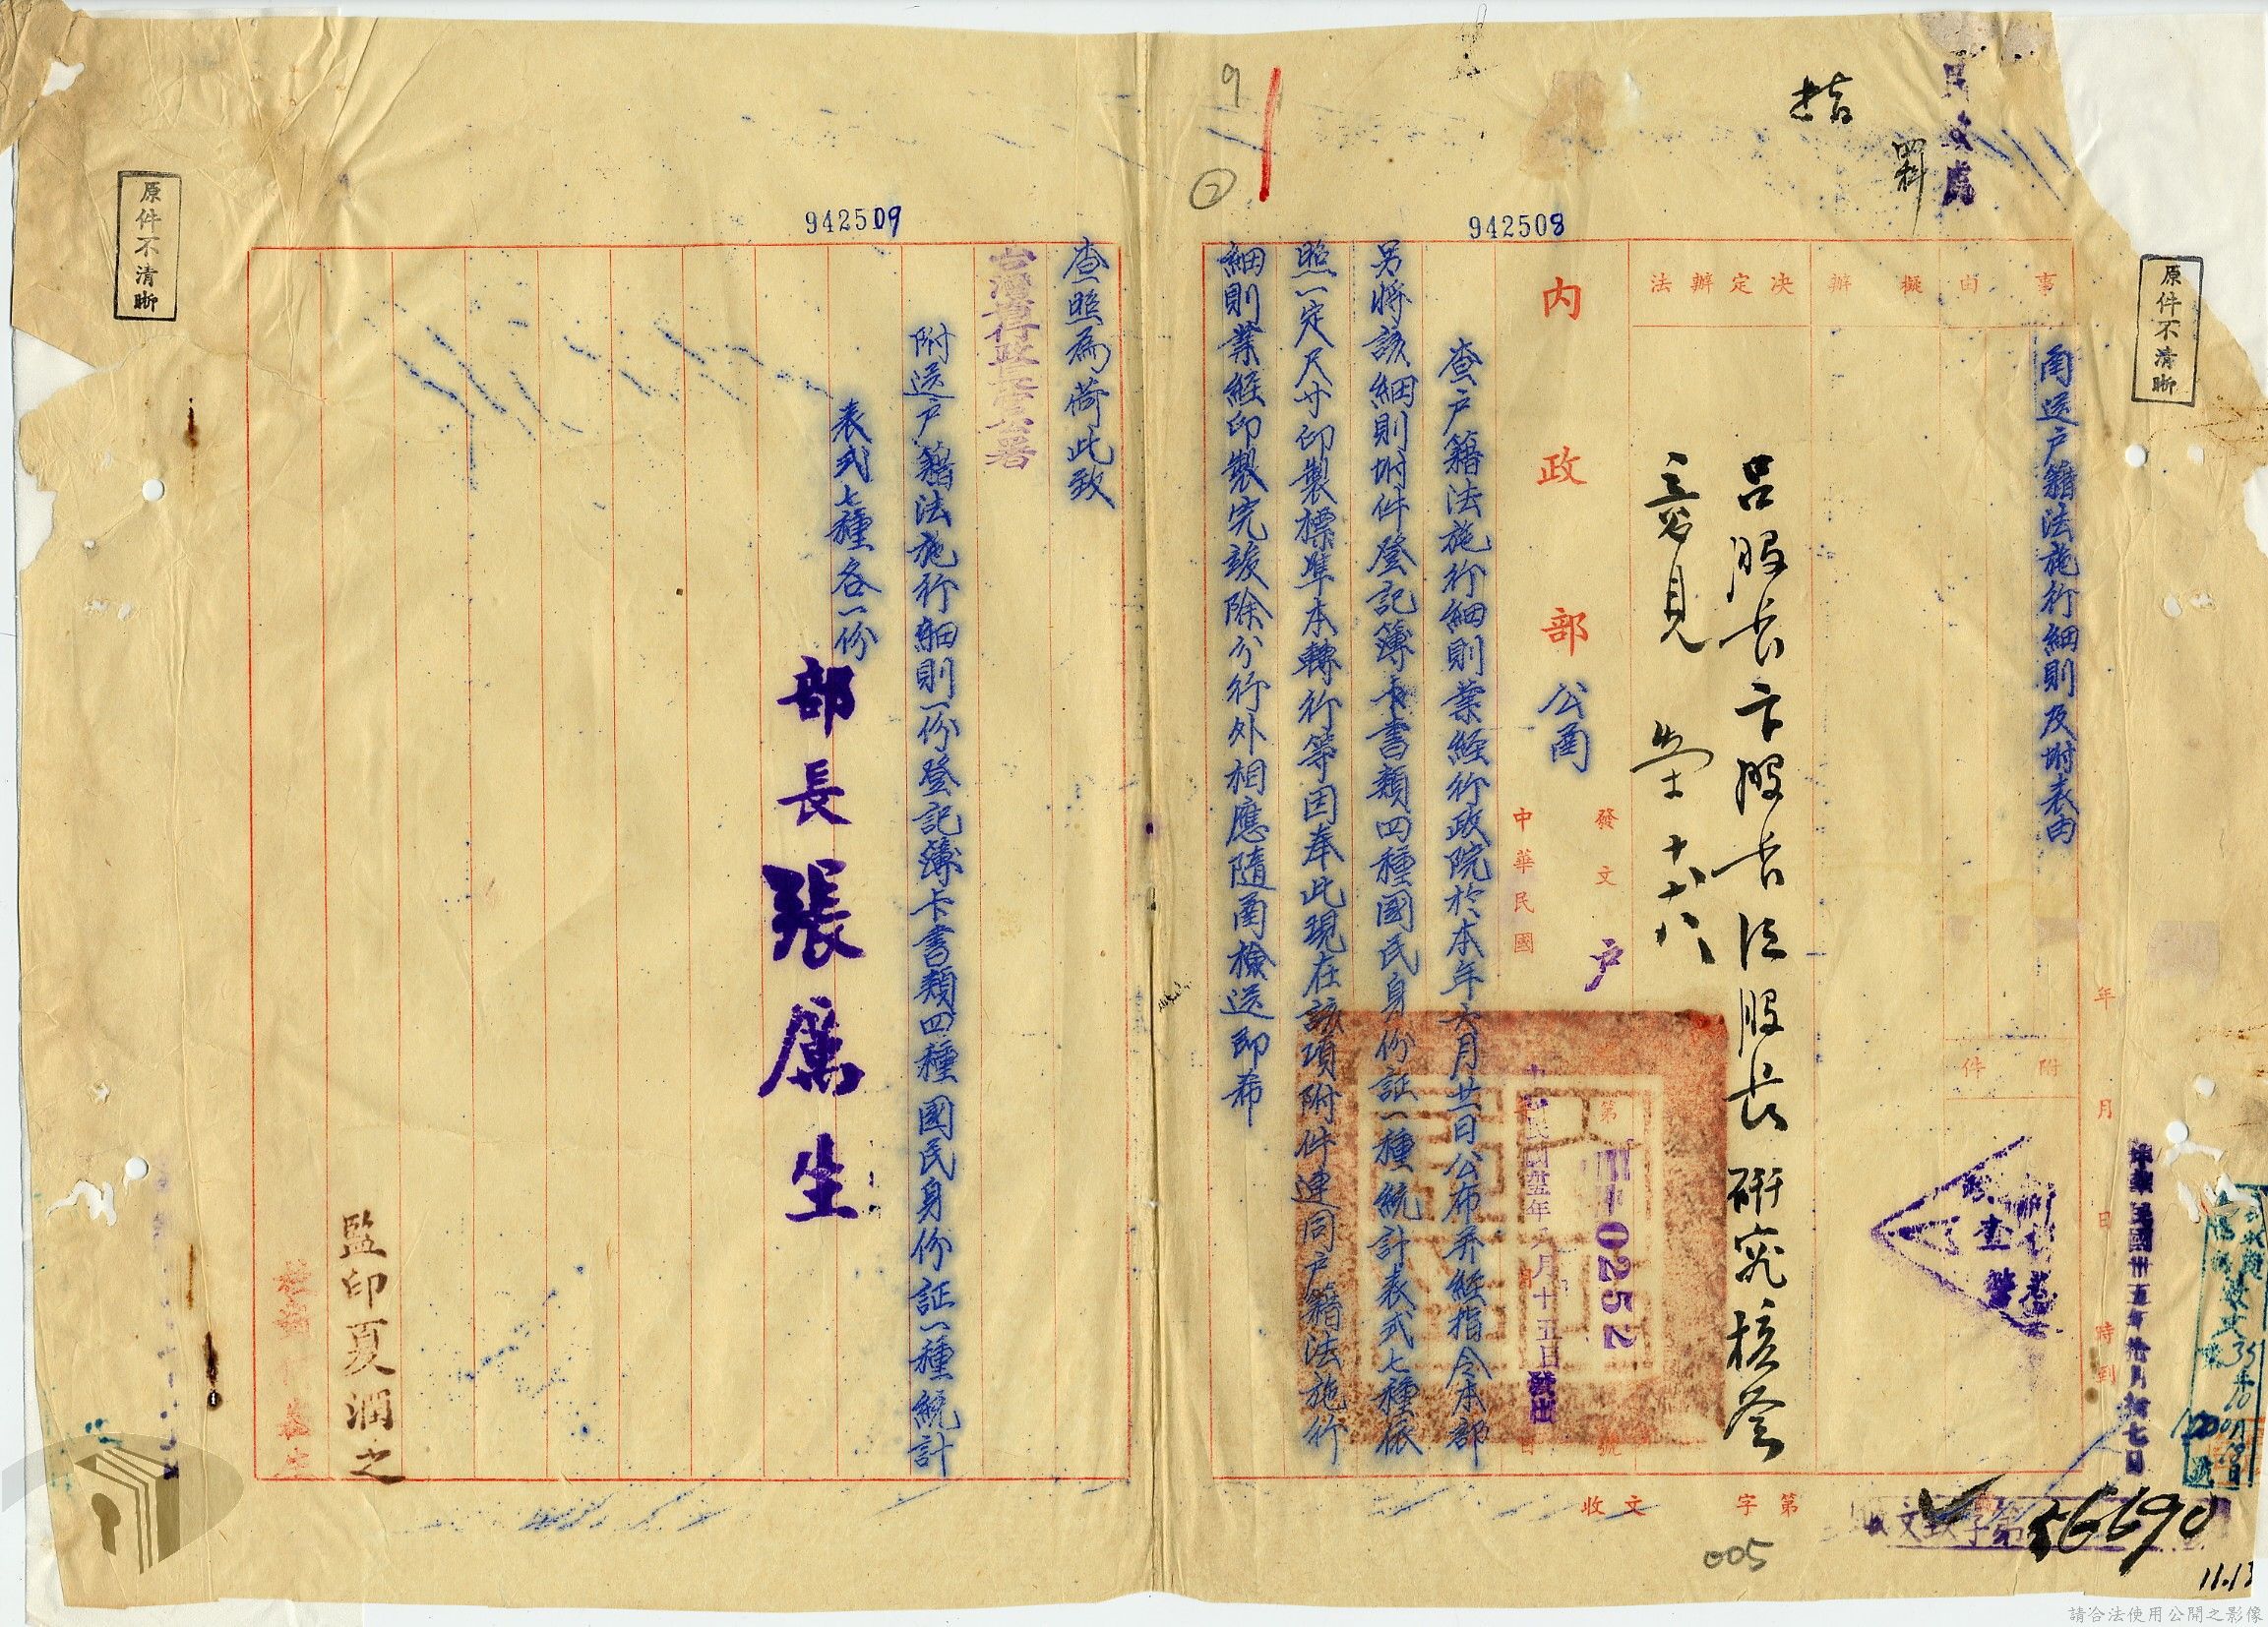 民政處
四科
原件不清晰
事由
函送戶籍法施行細則及附表由
附件
擬辦
決定辦法
呂股長卞股長法股長研究核签
意見
十、十八
942508
內政部公函
發文 戶 第 0252 號
中華民國卅五年 月十五日發出
查戶籍法施行細則業經行政院於本年六月廿一日公布并經指令本部
另將該細則附件登記簿卡書類四種國民身份証一種統計表式七種依
照一定尺寸印製標準本轉行等因奉此現在該項附件連同戶籍法施行
細則業經印製完竣除分行外相應隨函檢送即希
年月日時到
中華民國卅五年拾月拾七日
收文 字第
56690
005
11.13
9
2
942509
查照為荷此致
台灣省行政長官公署
附送戶籍法施行細則一份登記簿卡書類四種國民身份証一種統計
表式七種各一份
部長張厲生
監印夏潤之
原件不清晰
請合法使用公開之影像